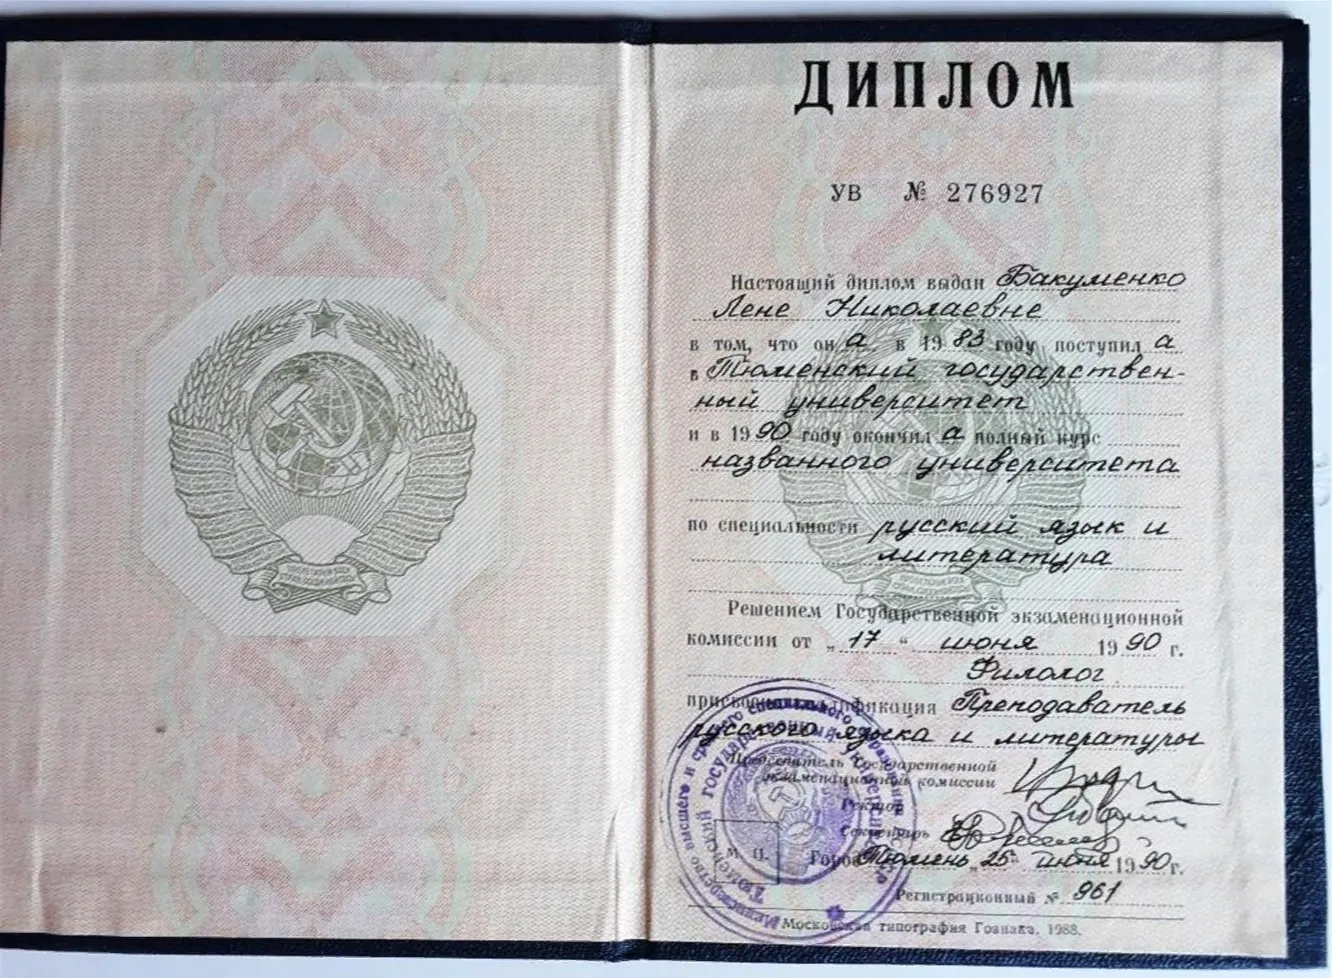 ДИПЛОМ
УВ № 276927
Настоящий диплом выдан Бакуменко
Лене Николаевне
в том, что он а в 1983 году поступил а
в Тюменский государствен-
ный университет
и в 1990 году окончил а полный курс
названного университета
по специальности русский язык и
литература
Решением Государственной экзаменационной
комиссии от „17“ июня 1990 г.
Филолог
квалификация Преподаватель
русского языка и литературы
Председатель Государственной
экзаменационной комиссии
Ректор
Секретарь
М. П. Город Тюмень „25“ июня 1990 г.
Регистрационный № 961
Московская типография Гознака. 1988.
Министерство высшего и среднего специального образования
Тюменский государственный университет